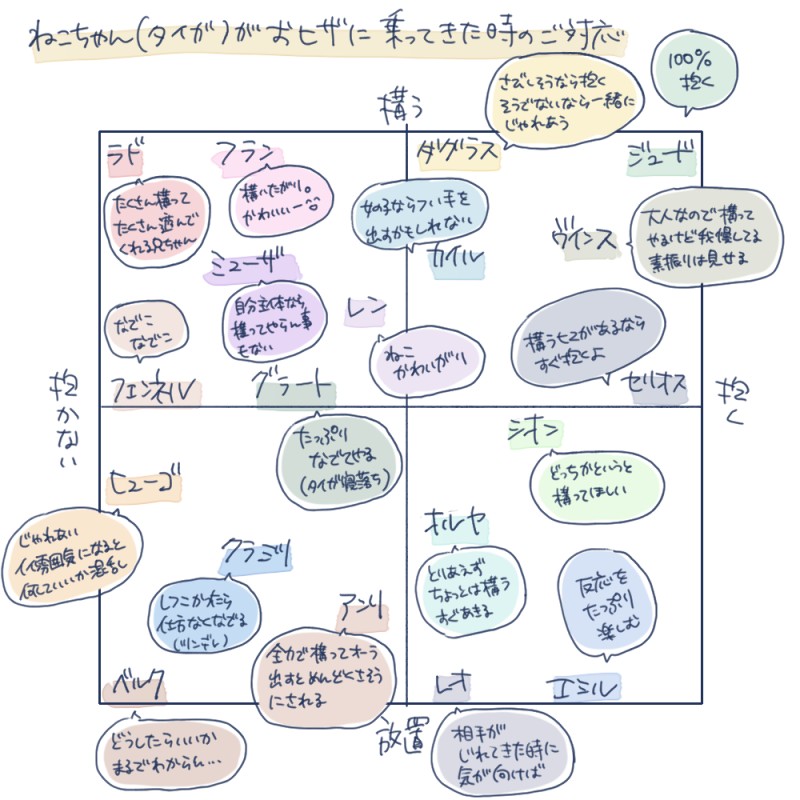 ねこちゃん(タイガ)がおヒザに乗ってきた時のご対応
100%
抱く
構う
さびしそうなら抱く
そうでないなら一緒に
じゃれあう
ラド
フラン
ダグラス
ジュード
たくさん構って
たくさん遊んで
くれる兄ちゃん
構いたがり。
かわいいー
女の子ならつい手を
出すかもしれない
カイル
ヴィンス
大人なので構って
やるけど我慢してる
素振りは見せる
ミューザ
自分主体なら、
構ってやらん事
もない
レン
ねこ
かわいがり
なでこ
なでこ
構うヒマがあるなら
すぐ抱くよ
抱かない
フェンネル
グラート
セリオス
抱く
たっぷり
なでてやる
(タイガ寝落ち)
シオン
どっちかというと
構ってほしい
ヒューゴ
じゃれあい
イイ雰囲気になると
何していいか混乱し
クラミツ
しつこかったら
仕方なくなでる
(ツンデレ)
アンリ
全力で構ってオーラ
出すとめんどくさそう
にされる
ホルヤ
とりあえず
ちょっとは構う
すぐあきる
反応を
たっぷり
楽しむ
ベルク
どうしたらいいか
まるでわからん…
放置
レオ
エミル
相手が
じれてきた時に
気が向けば